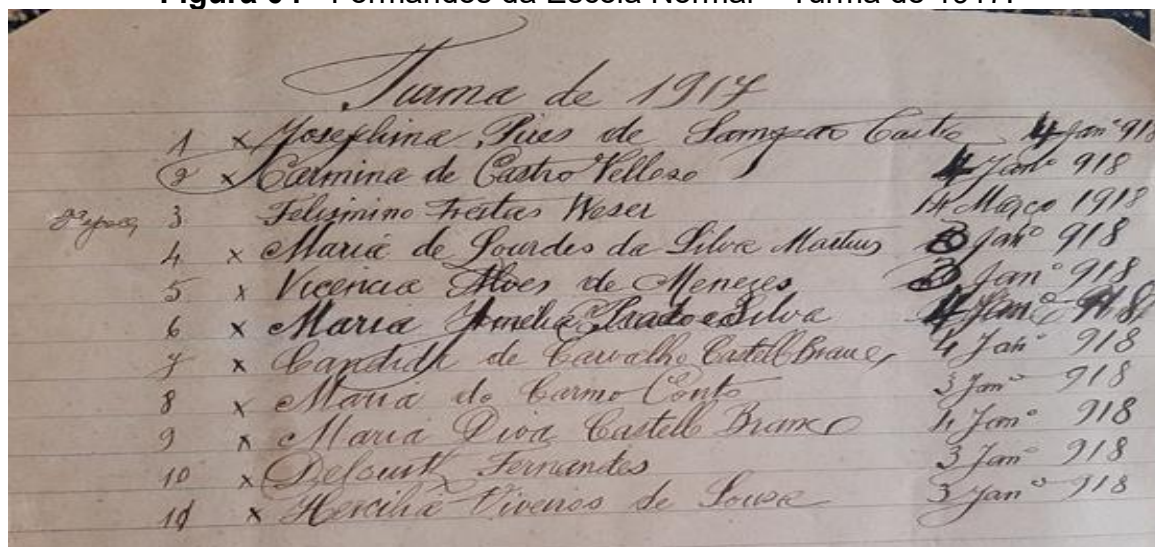 Turma de 1917
1 x Josephina Pires de Sampaio Castro 4 Janº 918
2 x Carmina de Castro Velloso 4 Janº 918
2ª epoca 3 Felismino Freitas Weser 14 Março 1918
4 x Maria de Lourdes da Silva Martins 3 Janº 918
5 x Vicencia Alves de Menezes 3 Janº 918
6 x Maria Amelia Prado e Silva 4 Janº 918
7 x Candida de Carvalho Castell Branco 4 Janº 918
8 x Maria do Carmo Couto 3 Janº 918
9 x Maria Diva Castello Branco 4 Janº 918
10 x Fernandes 3 Janº 918
11 x Hercilia Viveiros de Sousa 3 Janº 918